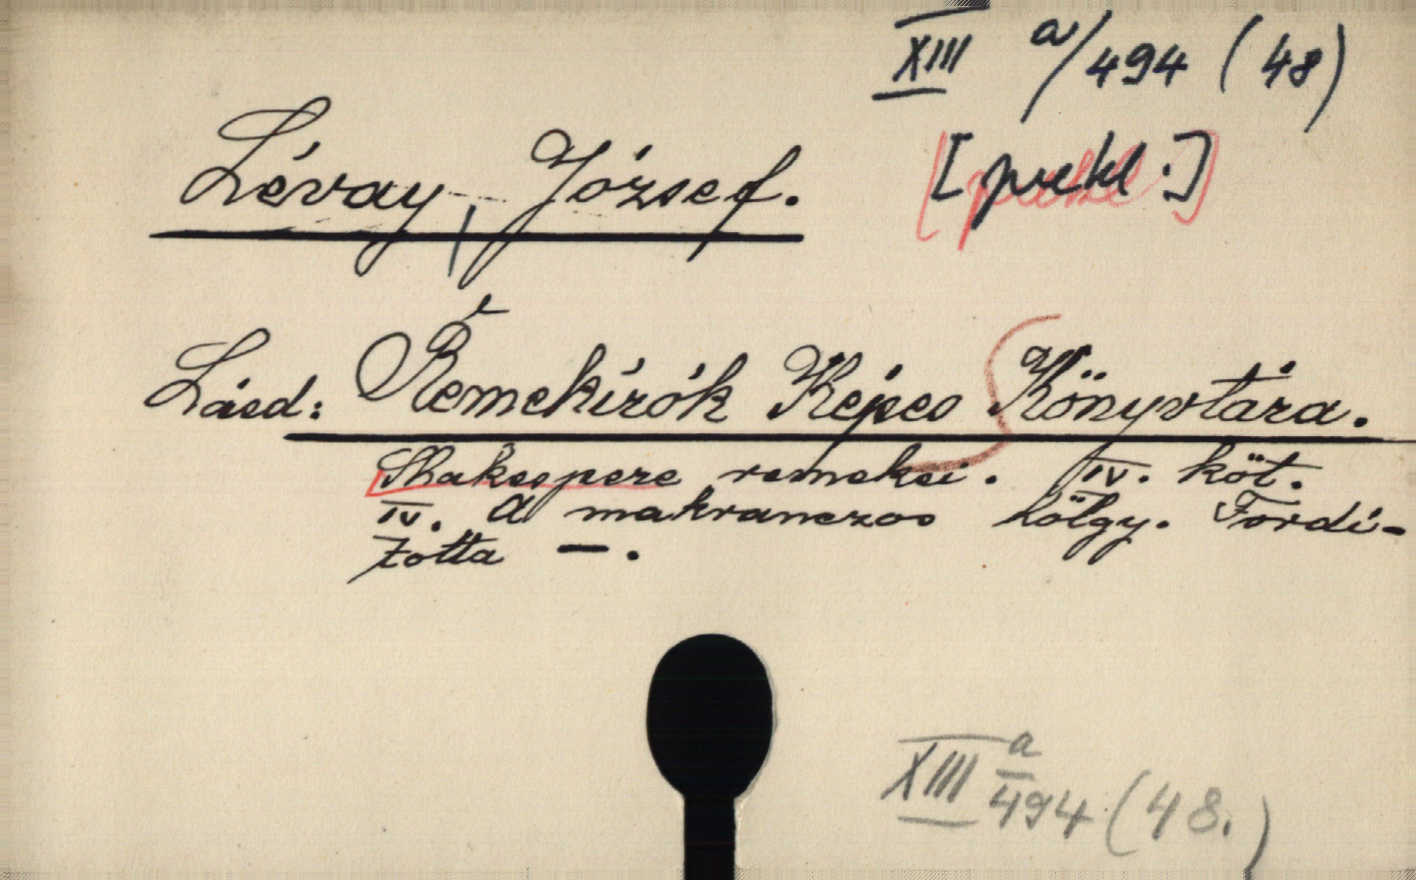 XIII a/494 (48)
Lévay, József. [prekl.]
Lásd: Remekírók Képes Könyvtára.
Shakespere remekei. IV. köt.
IV. A makranczos hölgy. Fordí-
totta — .
XIII a/494 (48.)